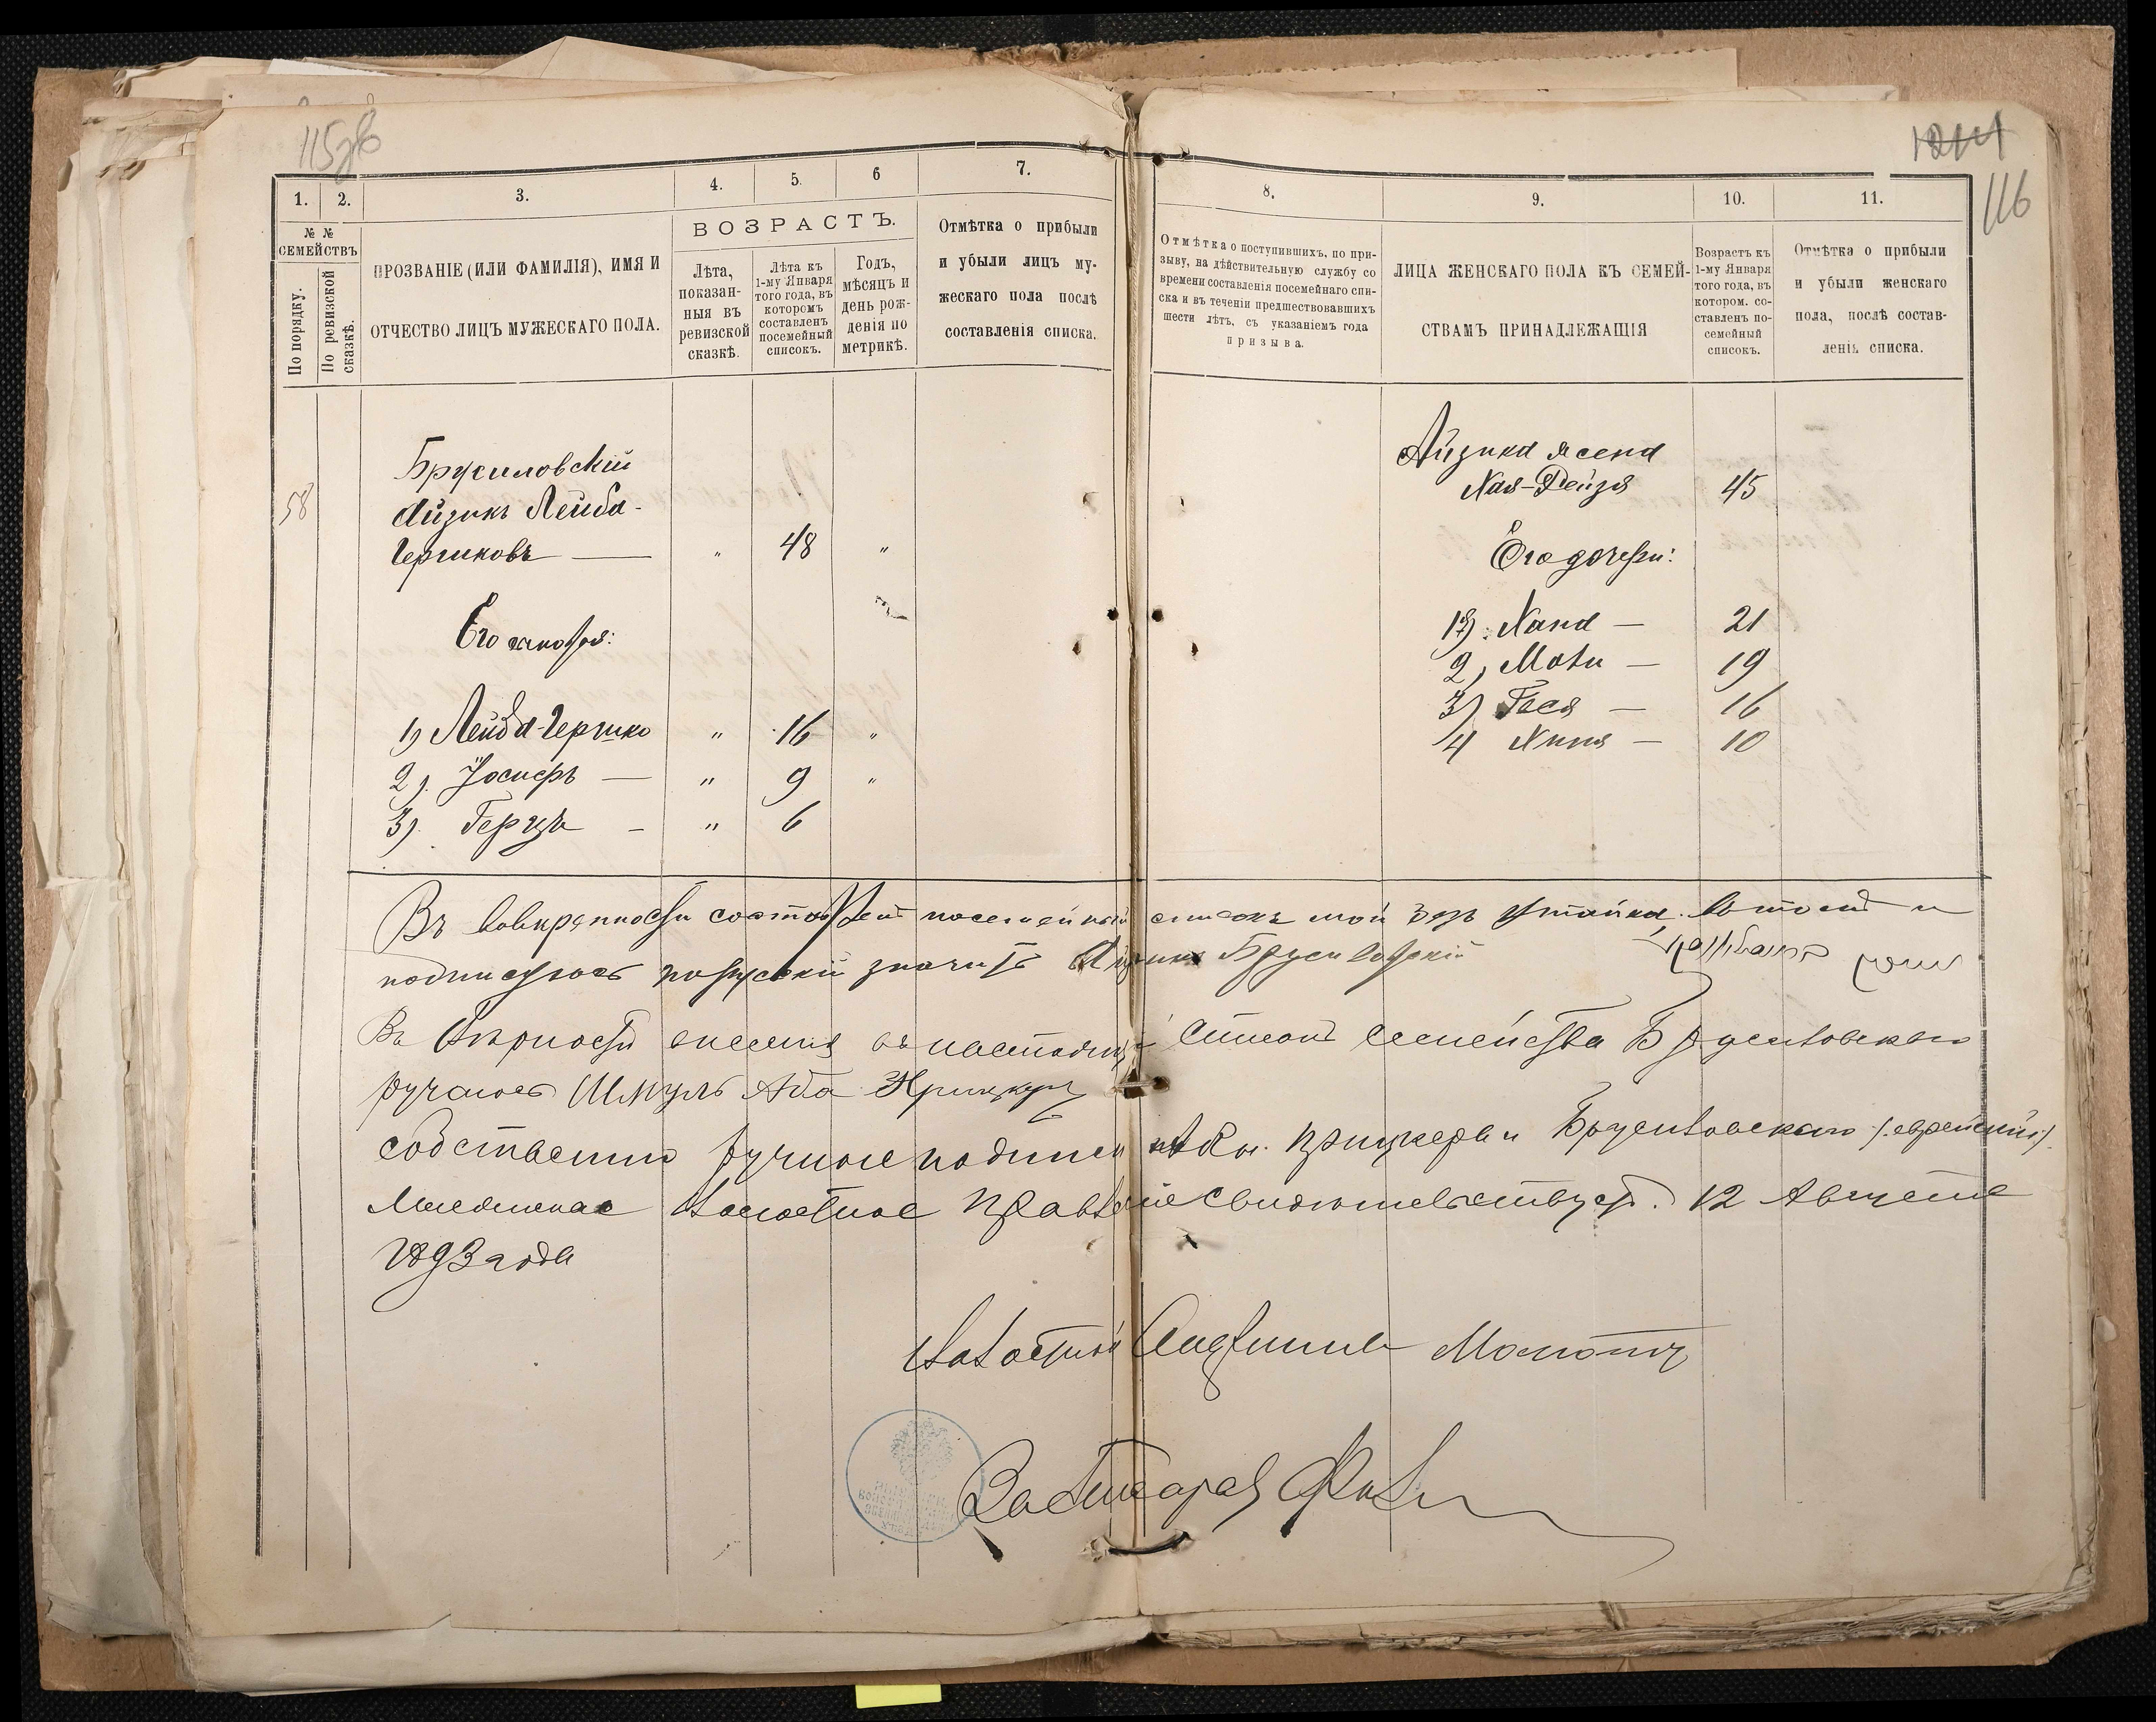 115 об
1214
116
1.
2.
3.
4.
5.
6
7.
8.
9.
10.
11.
№ №
СЕМЕЙСТВЪ
По порядку.
По ревизской
сказкѣ.
ПРОЗВАНІЕ (ИЛИ ФАМИЛІЯ), ИМЯ И
ОТЧЕСТВО ЛИЦЪ МУЖЕСКАГО ПОЛА.
ВОЗРАСТЪ.
Лѣта,
показан-
ныя въ
ревизской
сказкѣ.
Лѣта къ
1-му Января
того года, въ
которомъ
составленъ
посемейный
списокъ.
Годъ,
мѣсяцъ и
день рож-
денія по
метрикѣ.
Отмѣтка о прибыли
и убыли лицъ му-
жескаго пола послѣ
составленія списка.
Отмѣтка о поступившихъ, по при-
зыву, на дѣйствительную службу со
времени составленія посемейнаго спи-
ска и въ теченіи предшествовавшихъ
шести лѣтъ, съ указаніемъ года
призыва.
ЛИЦА ЖЕНСКАГО ПОЛА КЪ СЕМЕЙ-
СТВАМЪ ПРИНАДЛЕЖАЩІЯ
Возрастъ къ
1-му Января
того года, въ
котором. со-
ставленъ по-
семейный
списокъ.
Отмѣтка о прибыли
и убыли женскаго
пола, послѣ состав-
ленія списка.
Брусиловскій
58 Айзикъ Лейба-
Гершковъ — " 48 "
Его сыновья:
1) Лейба-Гершко " 16 "
2). Іосифъ — " 9 "
3). Герцъ - " 6
Айзика жена
Хая-Рейзя 45
Его дочери:
1) Хана — 21
2) Моти — 19
3) Гися — 16
4 Хиня — 10
посемейный списокъ мой безъ утайки, въ томъ и
подписуюсь значитъ Айзикъ Брусиловскій
Въ вѣрности въ списокъ семейства Брусиловскаго
ручаюсь Шмуль Аба
собственно ручное подписи Прицкера и Брусиловскаго /:еврейскій:/.
Волостное Правленіе свидѣтельствуетъ. 12 Августа
1893 года
Волостной Старшина